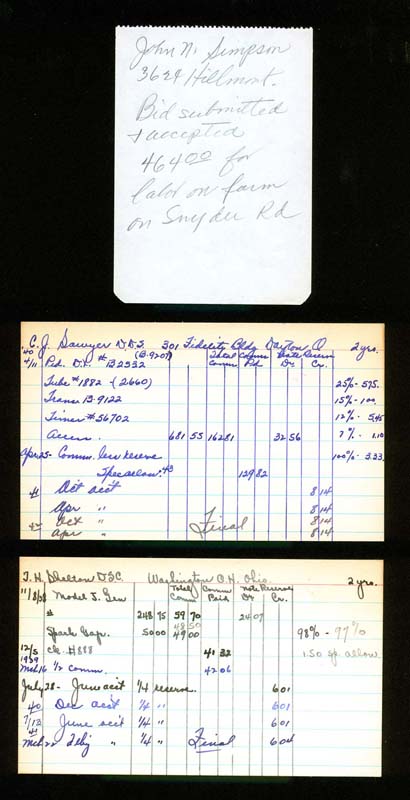 John N. Simpson
3624 Hillmont.
Bid submitted
+ accepted
464 00 for
labor on farm
on Snyder Rd
C. J. Sawyer D.D.S. 301 Fidelity Bldg Dayton, O 2 yrs.
'40 (B-9207) Total Comm Note Reserve
4/11 Ped. D.P. # B2532 Comm Pd Dr Cr.
Tube #1882 - (2660) 25% - 575.
Trans B-9122 15% - 100.
Timer # 56702 12% - 5.45
Accen. 681 55 162 81 32 56 7% - 1.10
Apr 25 - Comm. less reserve 100% - 3.33
Spec allow. 129 82
Oct acct 8 14
'41 Apr " 8 14
Oct " 8 14
'42 Apr " Final 8 14
T. H. D.S.C. Washington C.H. Ohio. 2 yrs.
11/8/38 Model J. Gen Total Comm Comm Paid Note Reserve Dr Cr.
# 248 75 59 70 24 07
48 50
Spark Gap. 50 00 49 00 98% - 97%
12/5 ck. #888 41 32 1.50 allow
1939
Mch 16 1/2 comm. 42 06
July 28 - June acct 1/4 reserve. 6 01
40 Dec acct 1/4 " 6 01
7/13 June acct 1/4 " 6 01
41
Mch 1/4 " Final 6 04